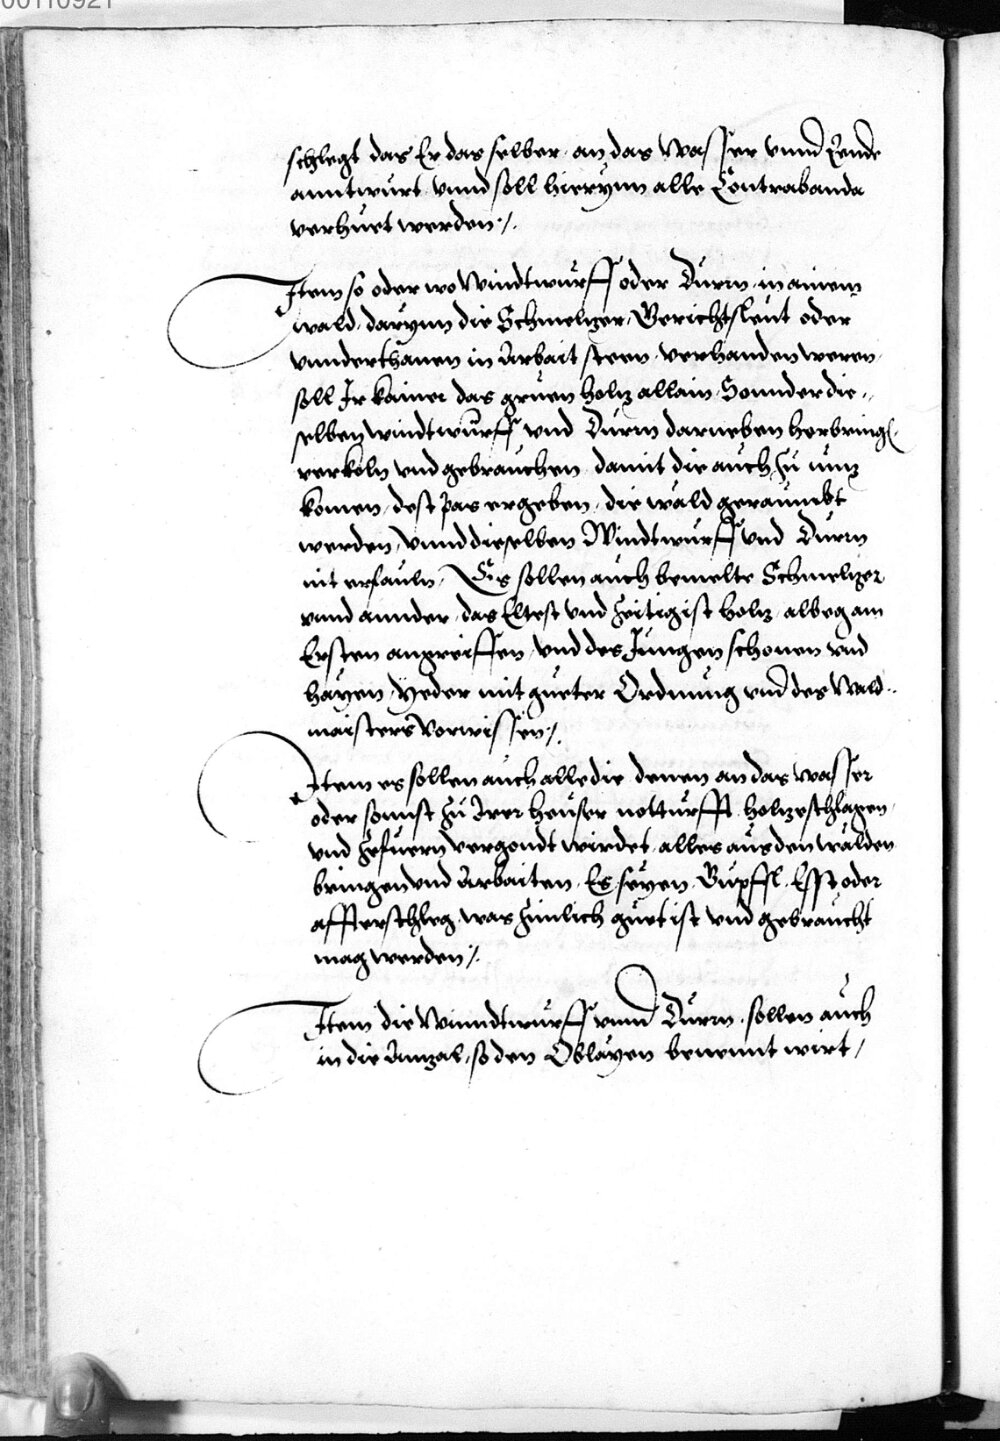 00110921
schlegt das Er das selber an das Wasser vnnd Lennde
anntwurt vnnd soll hierynn alle Contrabanda
verhüet werden /.
Item so oder wo Windtwürff oder Dürrn in ainem
wald, darynn die Schmeltzer, Gerichtsleut oder
vnnderthanen in Arbait steen, verhanden weren,
soll Ir kainer das gruen holtz allain, Sonnder die-
selben windtwürff vnd Dürrn darneben herbringen,
verkoln vnd gebrauchen, damit die auch zu nutz
komen, dest pas ergeben, die wäld geraumbt
werden, vnnd dieselben Windtwurff vnd Dürrn
nit erfauln, Es sollen auch bemelte Schmeltzer
vnnd annder, das Eltest vnd zeitigist holtz, albeg am
Ersten angreiffen, vnd des Jungen schonen vnd
hayen, Yeder mit gueter Ordnung vnd des Wald-
maisters Vorwissen /.
Item es sollen auch alle die, denen an das wasser
oder sonnst zu Irer heuser notturfft, holtzeschlagen,
vnd zefuern vergondt wirdet, alles aus den wälden
bringen vnd Arbaiten, Es seyen, Gupffl, Esst oder
affterschleg, was zimlich guet ist vnd gebraucht
mag werden /.
Item die Winndtwürff vnnd Dürrn, sollen auch
in die Anzal, so den Oblayen benennt wirt,